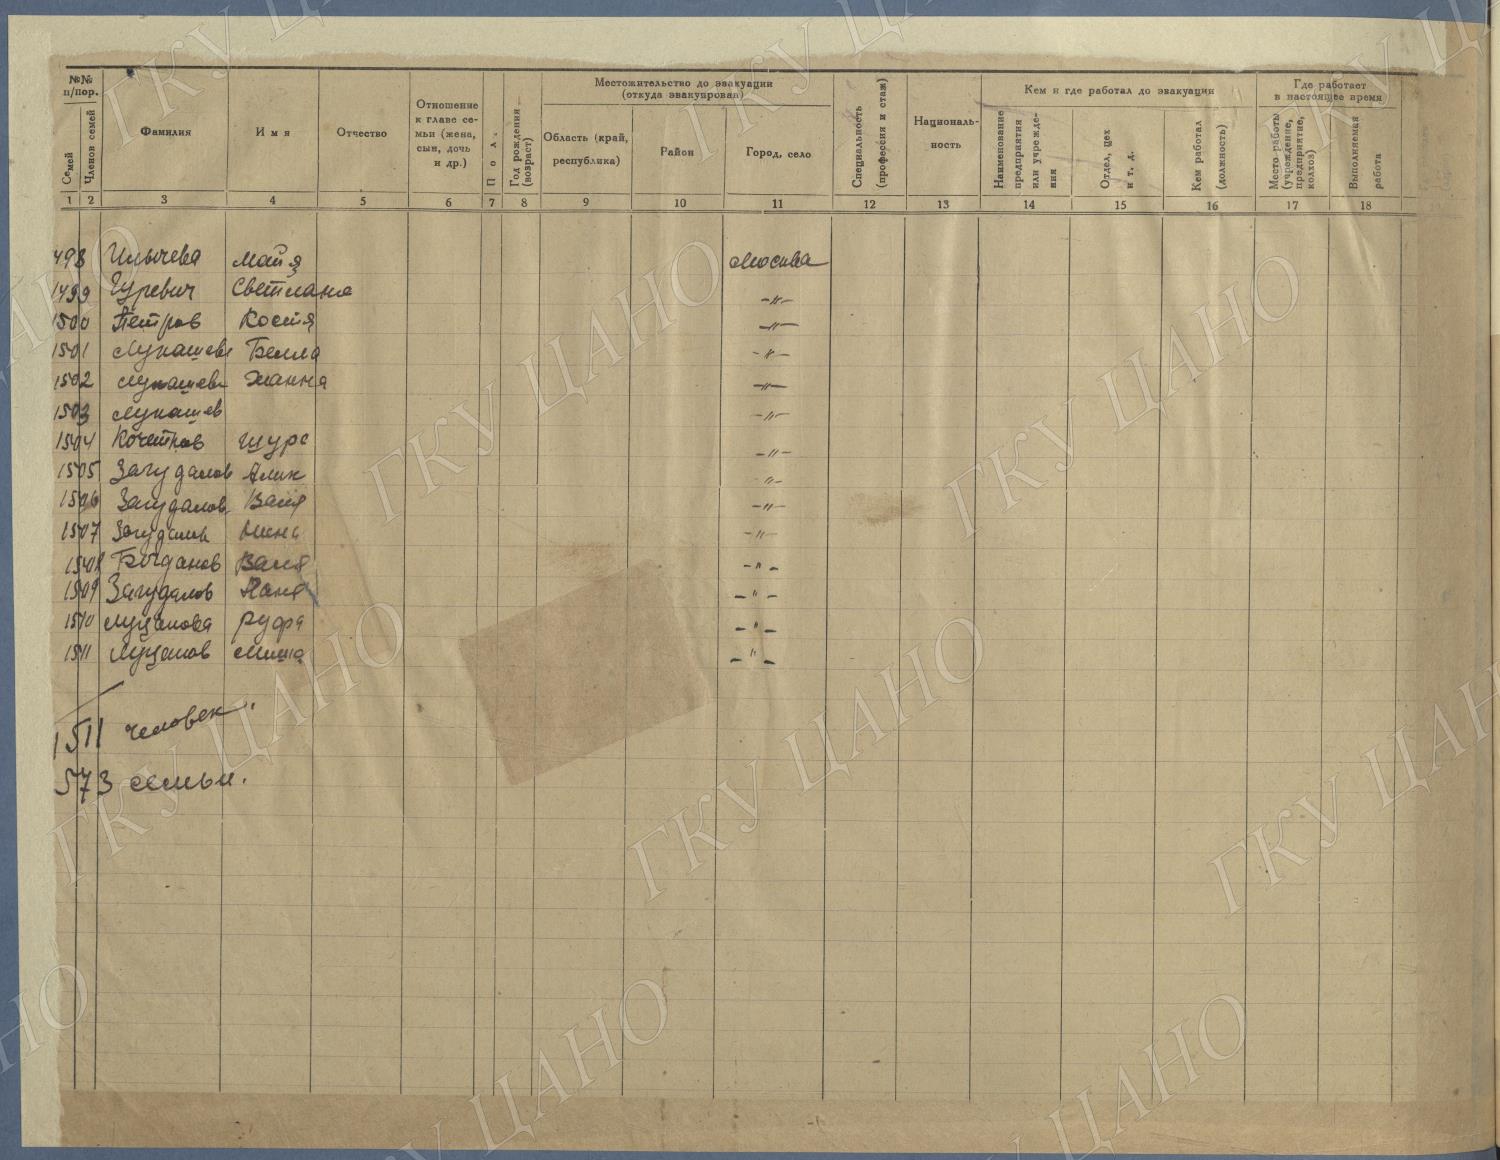 №№ п/пор.
Семей
Членов семей
Фамилия
Имя
Отчество
Отношение к главе семьи (жена, сын, дочь и др.)
Пол
Год рождения (возраст)
Местожительство до эвакуации (откуда эвакуирован)
Область (край, республика)
Район
Город, село
Специальность (профессия и стаж)
Националь-
ность
Кем и где работал до эвакуации
Наименование предприятия или учрежде-
ния
Отдел, цех и т. д.
Кем работал (должность)
Где работает в настоящее время
Место работы (учреждение, предприятие, колхоз)
Выполняемая работа
1 2 3 4 5 6 7 8 9 10 11 12 13 14 15 16 17 18
1498 Ильичева Майя Москва
1499 Гуревич Светлана -"-
1500 Петров Костя -"-
1501 Лукашев Белла -"-
1502 Лукашев Жанна -"-
1503 Лукашев -"-
1504 Кочетков Шура -"-
1505 Загудалов Алик -"-
1506 Загудалов Ваня -"-
1507 Загудалов Нина -"-
1508 Богданов Ваня -"-
1509 Загудалов -"-
1510 Луцанова Руфа -"-
1511 Луцанов Миша -"-
1511 человек.
573 семьи.
ГКУ ЦАНО